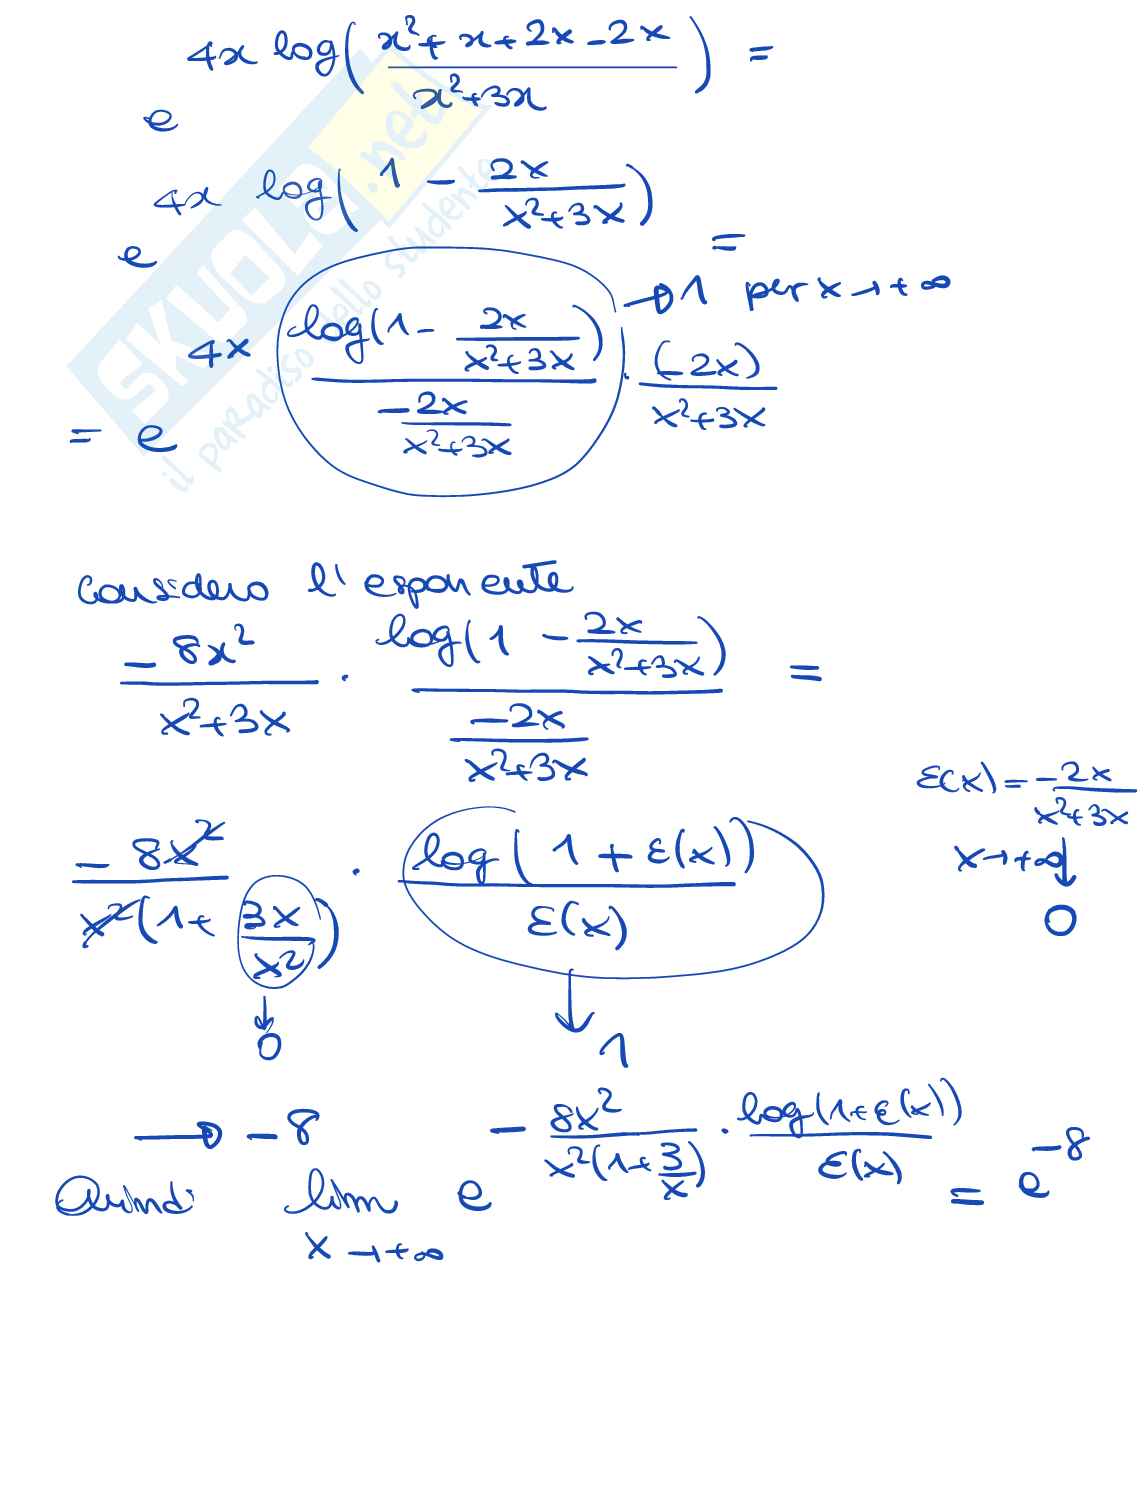 e^{4x log( (x²+x+2x-2x)/(x²+3x) )} =
e^{4x log( 1 - 2x/(x²+3x) )} =
= e^{4x · log(1 - 2x/(x²+3x)) / (-2x/(x²+3x)) · (-2x)/(x²+3x)} → 1 per x→+∞
Considero l'esponente
-8x²/(x²+3x) · log(1 - 2x/(x²+3x)) / (-2x/(x²+3x)) =
ε(x) = -2x/(x²+3x)
x→+∞ ↓ 0
-8x²/(x²(1+3x/x²)) · log(1+ε(x))/ε(x)
↓ 0 ↓ 1
→ -8
Quindi lim x→+∞ e^{-8x²/(x²(1+3/x)) · log(1+ε(x))/ε(x)} = e^{-8}
SKUOLA.net
il paradiso dello studente